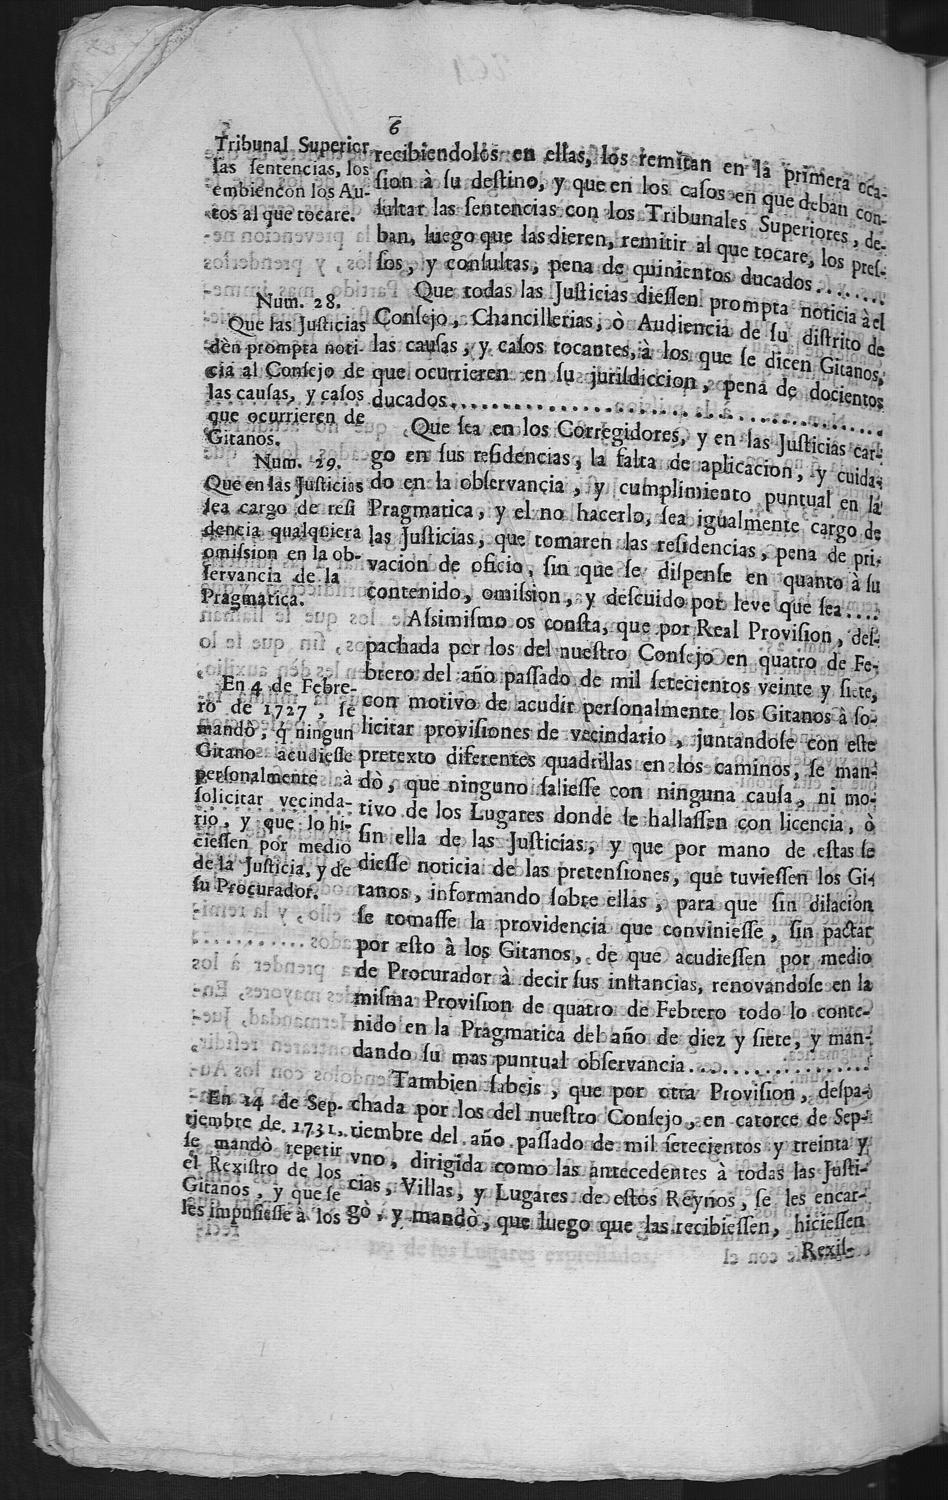 6
Tribunal Superior
las sentencias, los
embien con los Au-
tos al que tocare.
Num. 28.
Que las Justicias
dèn prompta noti-
cia al Consejo de
las causas, y casos
que ocurrieren de
Gitanos.
Num. 29.
Que en las Justicias
sea cargo de resi
dencia qualquiera
omission en la ob-
servancia de la
Pragmatica.
En 4 de Febre-
ro de 1727, se
mandò, q̃ ningun
Gitano acudiesse
personalmente à
solicitar vecinda-
rio, y que lo hi-
ciessen por medio
de la Justicia, y de
su Procurador.
En 14 de Sep-
tiembre de 1731.
se mandò repetir
el Rexistro de los
Gitanos, y que se
les impusiesse à los
recibiendolos en ellas, los remitan en la primera oca-
sion à su destino, y que en los casos en que deban con-
sultar las sentencias con los Tribunales Superiores, de-
ban, luego que las dieren, remitir al que tocare, los pres-
sos, y consultas, pena de quinientos ducados........
Que todas las Justicias diessen prompta noticia à el
Consejo, Chancillerias, ò Audiencia de su distrito de
las causas, y casos tocantes, à los que se dicen Gitanos,
que ocurrieren en su jurisdiccion, pena de docientos
ducados........................................
Que sea en los Corregidores, y en las Justicias car-
go en sus residencias, la falta de aplicacion, y cuida-
do en la observancia, y cumplimiento puntual en la
Pragmatica, y el no hacerlo, sea igualmente cargo de
las Justicias, que tomaren las residencias, pena de pri-
vacion de oficio, sin que se dispense en quanto à su
contenido, omission, y descuido por leve que sea....
Assimismo os consta, que por Real Provision, des-
pachada por los del nuestro Consejo en quatro de Fe-
brero del año passado de mil setecientos veinte y siete,
con motivo de acudir personalmente los Gitanos à so-
licitar provisiones de vecindario, juntandose con este
pretexto diferentes quadrillas en los caminos, se man-
dò, que ninguno saliesse con ninguna causa, ni mo-
tivo de los Lugares donde se hallassen con licencia, ò
sin ella de las Justicias, y que por mano de estas se
diesse noticia de las pretensiones, que tuviessen los Gi-
tanos, informando sobre ellas, para que sin dilacion
se tomasse la providencia que conviniesse, sin pactar
por esto à los Gitanos, de que acudiessen por medio
de Procurador à decir sus instancias, renovandose en la
misma Provision de quatro de Febrero todo lo conte-
nido en la Pragmatica del año de diez y siete, y man-
dando su mas puntual observancia................
Tambien sabeis, que por otra Provision, despa-
chada por los del nuestro Consejo, en catorce de Sep-
tiembre del año passado de mil setecientos y treinta y
vno, dirigida como las antecedentes à todas las Justi-
cias, Villas, y Lugares de estos Reynos, se les encar-
gò, y mandò, que luego que las recibiessen, hiciessen
Rexis-